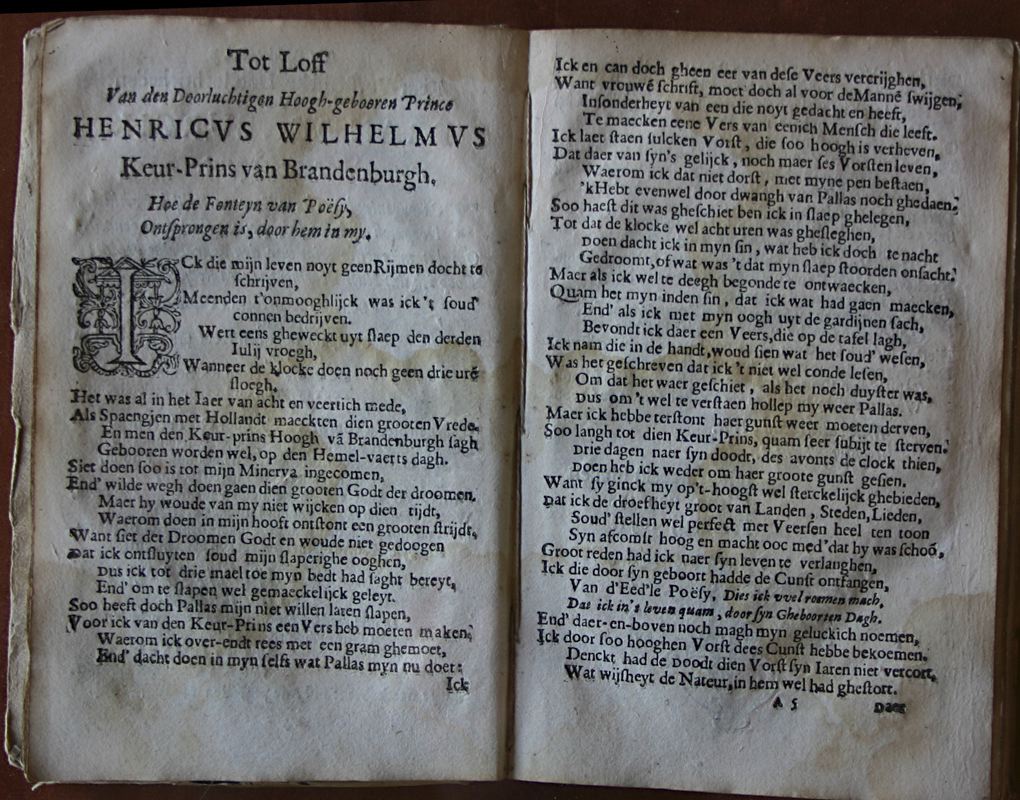 Tot Loff
Van den Doorluchtigen Hoogh-gebooren Prince
HENRICVS WILHELMVS
Keur-Prins van Brandenburgh.
Hoe de Fonteyn van Poësy,
Ontſprongen is, door hem in my.
ICk die mijn leven noyt geen Rijmen docht te
ſchrijven,
Meenden t'onmooghlijck was ick't ſoud'
connen bedrijven.
Wert eens gheweckt uyt ſlaep den derden
Iulij vroegh,
Wanneer de klocke doen noch geen drie urē
ſloegh.
Het was al in het Iaer van acht en veertich mede,
Als Spaengjen met Hollandt maeckten dien grooten Vrede.
En men den Keur-prins Hoogh vā Brandenburgh ſagh
Gebooren worden wel, op den Hemel-vaerts dagh.
Siet doen ſoo is tot mijn Minerva ingecomen,
End' wilde wegh doen gaen dien grooten Godt der droomen.
Maer hy woude van my niet wijcken op dien tijdt,
Waerom doen in mijn hooft ontſtont een grooten ſtrijdt.
Want ſiet der Droomen Godt en woude niet gedoogen
Dat ick ontſluyten ſoud mijn ſlaperighe ooghen,
Dus ick tot drie mael toe myn bedt had ſaght bereyt,
End' om te ſlapen wel gemaeckelijck geleyt.
Soo heeft doch Pallas mijn niet willen laten ſlapen,
Voor ick van den Keur-Prins een Vers heb moeten maken.
Waerom ick over-endt rees met een gram ghemoet,
End' dacht doen in myn ſelfs wat Pallas myn nu doet:
Ick
Ick en can doch gheen eer van deſe Veers vercrijghen,
Want vrouwē ſchrift, moet doch al voor de Mannē ſwijgen,
Inſonderheyt van een die noyt gedacht en heeft,
Te maecken eene Vers van eenich Menſch die leeft.
Ick laet ſtaen ſulcken Vorſt, die ſoo hoogh is verheven,
Dat daer van ſyn's gelijck, noch maer ſes Vorſten leven,
Waerom ick dat niet dorſt, met myne pen beſtaen,
'k Hebt evenwel door dwangh van Pallas noch ghedaen.
Soo haeſt dit was gheſchiet ben ick in ſlaep ghelegen,
Tot dat de klocke wel acht uren was gheſleghen,
Doen dacht ick in myn ſin, wat heb ick doch te nacht
Gedroomt, of wat was 't dat myn ſlaep ſtoorden onſacht.
Maer als ick wel te deegh begonde te ontwaecken,
Quam het myn inden ſin, dat ick wat had gaen maecken,
End' als ick met myn oogh uyt de gardijnen ſach,
Bevondt ick daer een Veers, die op de tafel lagh,
Ick nam die in de handt, woud ſien wat het ſoud' weſen,
Was het geſchreven dat ick 't niet wel conde leſen,
Om dat het waer geſchiet, als het noch duyſter was,
Dus om 't wel te verſtaen hollep my weer Pallas.
Maer ick hebbe terſtont haer gunſt weer moeten derven,
Soo langh tot dien Keur-Prins, quam ſeer ſubijt te ſterven.
Drie dagen naer ſyn doodt, des avonts de clock thien,
Doen heb ick weder om haer groote gunſt geſien.
Want ſy ginck my op't-hoogſt wel ſterckelijck ghebieden,
Dat ick de droefheyt groot van Landen, Steden, Lieden,
Soud' ſtellen wel perfect met Veerſen heel ten toon
Syn afcomſt hoog en macht ooc med' dat hy was ſchoō.
Groot reden had ick naer ſyn leven te verlanghen,
Ick die door ſyn geboort hadde de Cunſt ontfangen,
Van d'Eed'le Poëſy, Dies ick vvel roemen mach,
Das ick in's leven quam, door ſyn Gheboorten Dagh.
End' daer-en-boven noch magh myn geluckich noemen,
Ick door ſoo hooghen Vorſt dees Cunſt hebbe bekoemen.
Denckt had de Doodt dien Vorſt ſyn Iaren niet vercort,
Wat wijſheyt de Nateur, in hem wel had gheſtort.
A 5
Daer